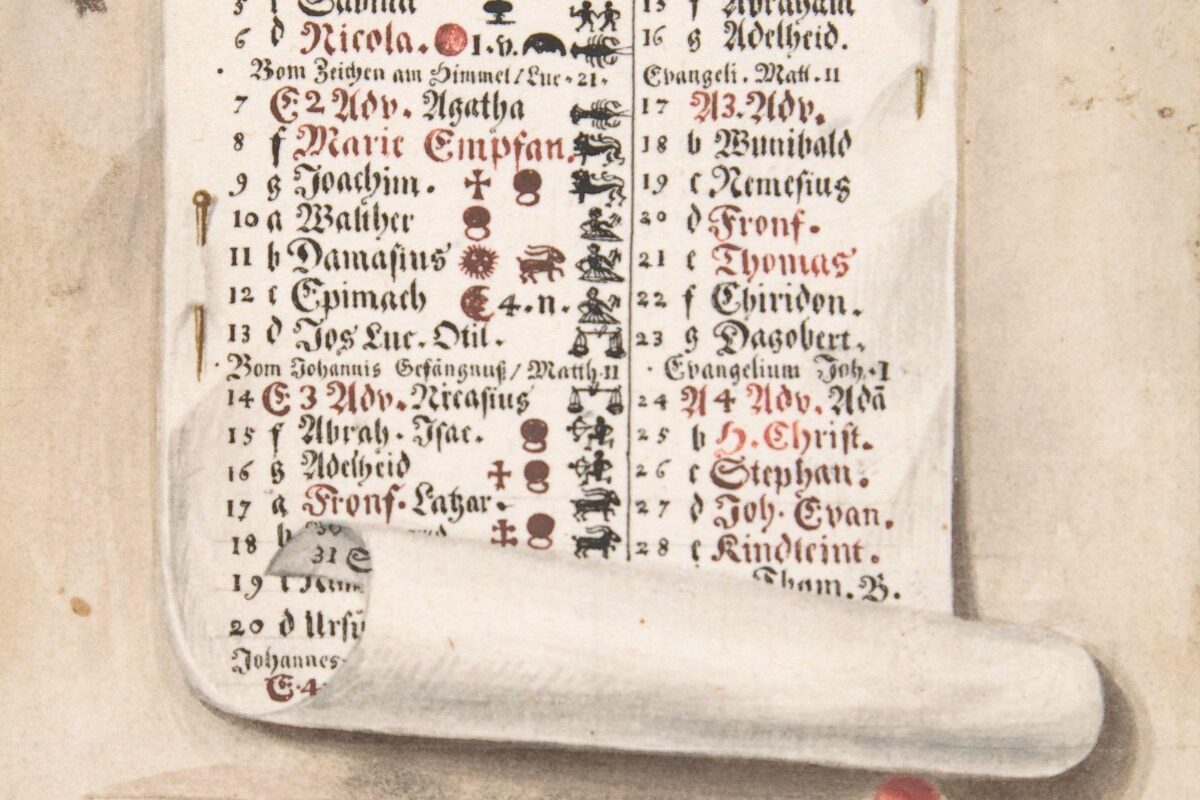 5 f Sabina
6 d Nicola. 1. v.
Vom Zeichen am Himmel / Luc. 21.
7 E 2 Adv. Agatha
8 f Marie Empfan.
9 g Joachim.
10 a Walther
11 b Damasius
12 c Epimach 4. n.
13 d Jos Luc. Otil.
Vom Johannis Gefängnuß / Matth. 11
14 E 3 Adv. Nicasius
15 f Abrah. Isac.
16 g Adelheid
17 a Fronf. Latzar.
18 b
31
19
20 d Ursu
Johannes
E. 4
15 f Abraham
16 g Adelheid.
Evangeli. Matt. 11
17 A 3. Adv.
18 b Wunibald
19 c Nemesius
20 d Fronf.
21 e Thomas
22 f Chiridon.
23 g Dagobert.
Evangelium Joh. 1
24 A 4 Adv. Adā
25 b H. Christ.
26 c Stephan.
27 d Joh. Evan.
28 e Kindleint.
Tham. B.